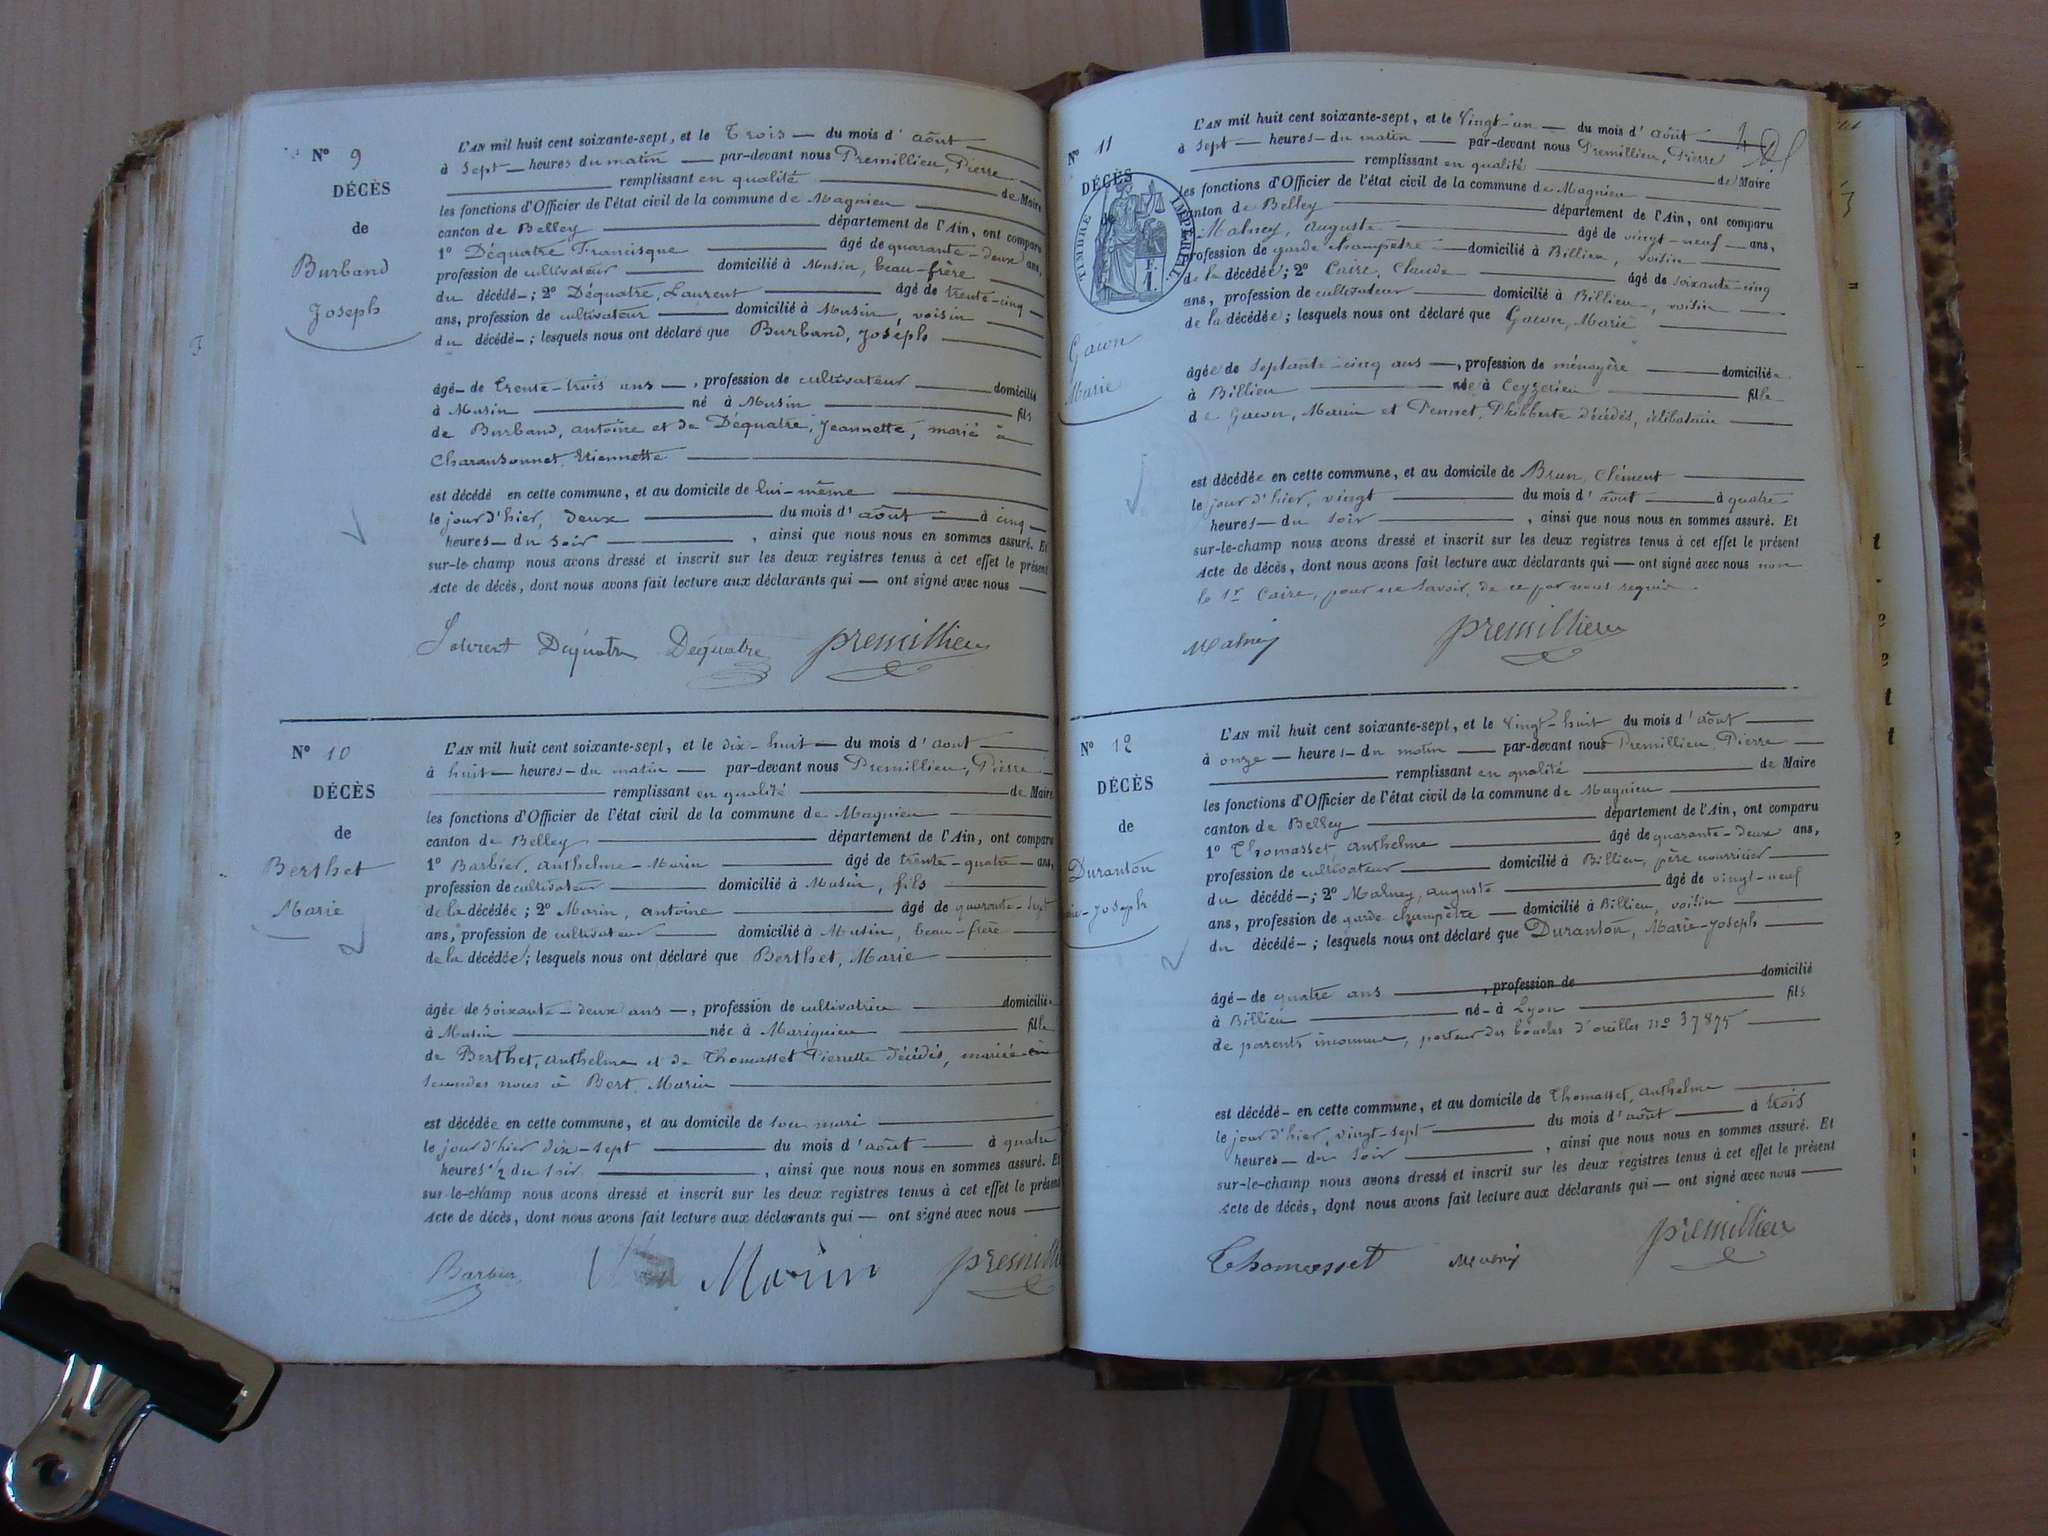 N° 9
DÉCÈS
de
Burband
Joseph
L'AN mil huit cent soixante-sept, et le Trois — du mois d' août
à sept — heures du matin — par-devant nous Premillieu, Pierre
remplissant en qualité de Maire
les fonctions d'Officier de l'état civil de la commune de Magnieu
canton de Belley département de l'Ain, ont comparu
1° Déquatre Francisque âgé de quarante-deux ans,
profession de cultivateur domicilié à Musin, beau-frère
du décédé ; 2° Déquatre, Laurent âgé de trente-cinq
ans, profession de cultivateur domicilié à Musin, voisin
du décédé ; lesquels nous ont déclaré que Burband, Joseph
âgé de trente-trois ans, profession de cultivateur domicilié
à Musin né à Musin fils
de Burband, antoine et de Déquatre, Jeannette, marié à
Charansonnet, Etiennette
est décédé en cette commune, et au domicile de lui-même
le jour d'hier, deux du mois d' août à cinq
heures du soir, ainsi que nous nous en sommes assuré. Et
sur-le-champ nous avons dressé et inscrit sur les deux registres tenus à cet effet le présent
Acte de décès, dont nous avons fait lecture aux déclarants qui — ont signé avec nous
Déquatre Déquatre premillieu
N° 10
DÉCÈS
de
Berthet
Marie
L'AN mil huit cent soixante-sept, et le dix-huit — du mois d' août
à huit — heures du matin — par-devant nous Premillieu, Pierre
remplissant en qualité de Maire
les fonctions d'Officier de l'état civil de la commune de Magnieu
canton de Belley département de l'Ain, ont comparu
1° Barbier, anthelme-Marin âgé de trente-quatre ans,
profession de cultivateur domicilié à Musin, fils
de la décédée ; 2° Marin, antoine âgé de quarante-sept
ans, profession de cultivateur domicilié à Musin, beau-frère
de la décédée ; lesquels nous ont déclaré que Berthet, Marie
âgée de soixante-deux ans, profession de cultivatrice domiciliée
à Musin née à Marignieu fille
de Berthet, anthelme et de Thomasset Pierrette décédés, mariée en
secondes noces à Bert, Marin
est décédée en cette commune, et au domicile de son mari
le jour d'hier dix-sept du mois d' août à quatre
heures 1/2 du soir, ainsi que nous nous en sommes assuré. Et
sur-le-champ nous avons dressé et inscrit sur les deux registres tenus à cet effet le présent
Acte de décès, dont nous avons fait lecture aux déclarants qui — ont signé avec nous
Barbier Marin premillieu
N° 11
DÉCÈS
TIMBRE IMPÉRIAL
Marie
L'AN mil huit cent soixante-sept, et le vingt-un — du mois d' août
à sept — heures du matin — par-devant nous Premillieu, Pierre
remplissant en qualité de Maire
les fonctions d'Officier de l'état civil de la commune de Magnieu
canton de Belley département de l'Ain, ont comparu
Malney, auguste âgé de vingt-neuf ans,
profession de garde champêtre domicilié à Billieu, voisin
de la décédée ; 2° Caire, Claude âgé de soixante-cinq
ans, profession de cultivateur domicilié à Billieu, voisin
de la décédée ; lesquels nous ont déclaré que Marie
âgée de septante-cinq ans, profession de ménagère domiciliée
à Billieu née à Ceyzerieu fille
de Marin et Philiberte décédés, célibataire
est décédée en cette commune, et au domicile de Brun, Clément
le jour d'hier, vingt du mois d' août à quatre
heures du soir, ainsi que nous nous en sommes assuré. Et
sur-le-champ nous avons dressé et inscrit sur les deux registres tenus à cet effet le présent
Acte de décès, dont nous avons fait lecture aux déclarants qui — ont signé avec nous non
Caire, pour ne savoir, de ce par nous requis.
Malney premillieu
N° 12
DÉCÈS
de
Duranton
-Joseph
L'AN mil huit cent soixante-sept, et le vingt-huit du mois d' août
à onze — heures du matin — par-devant nous Premillieu, Pierre
remplissant en qualité de Maire
les fonctions d'Officier de l'état civil de la commune de Magnieu
canton de Belley département de l'Ain, ont comparu
1° Thomasset anthelme âgé de quarante-deux ans,
profession de cultivateur domicilié à Billieu, père nourricier
du décédé ; 2° Malney, auguste âgé de vingt-neuf
ans, profession de garde champêtre — domicilié à Billieu, voisin
du décédé ; lesquels nous ont déclaré que Duranton, Marie-Joseph
âgé de quatre ans, profession de domicilié
à Billieu né à Lyon fils
de parents inconnus, porteur des boucles d'oreilles n° 37875
est décédé en cette commune, et au domicile de Thomasset, anthelme
le jour d'hier, vingt-sept du mois d' août à trois
heures du soir, ainsi que nous nous en sommes assuré. Et
sur-le-champ nous avons dressé et inscrit sur les deux registres tenus à cet effet le présent
Acte de décès, dont nous avons fait lecture aux déclarants qui — ont signé avec nous
Thomasset Malney premillieu